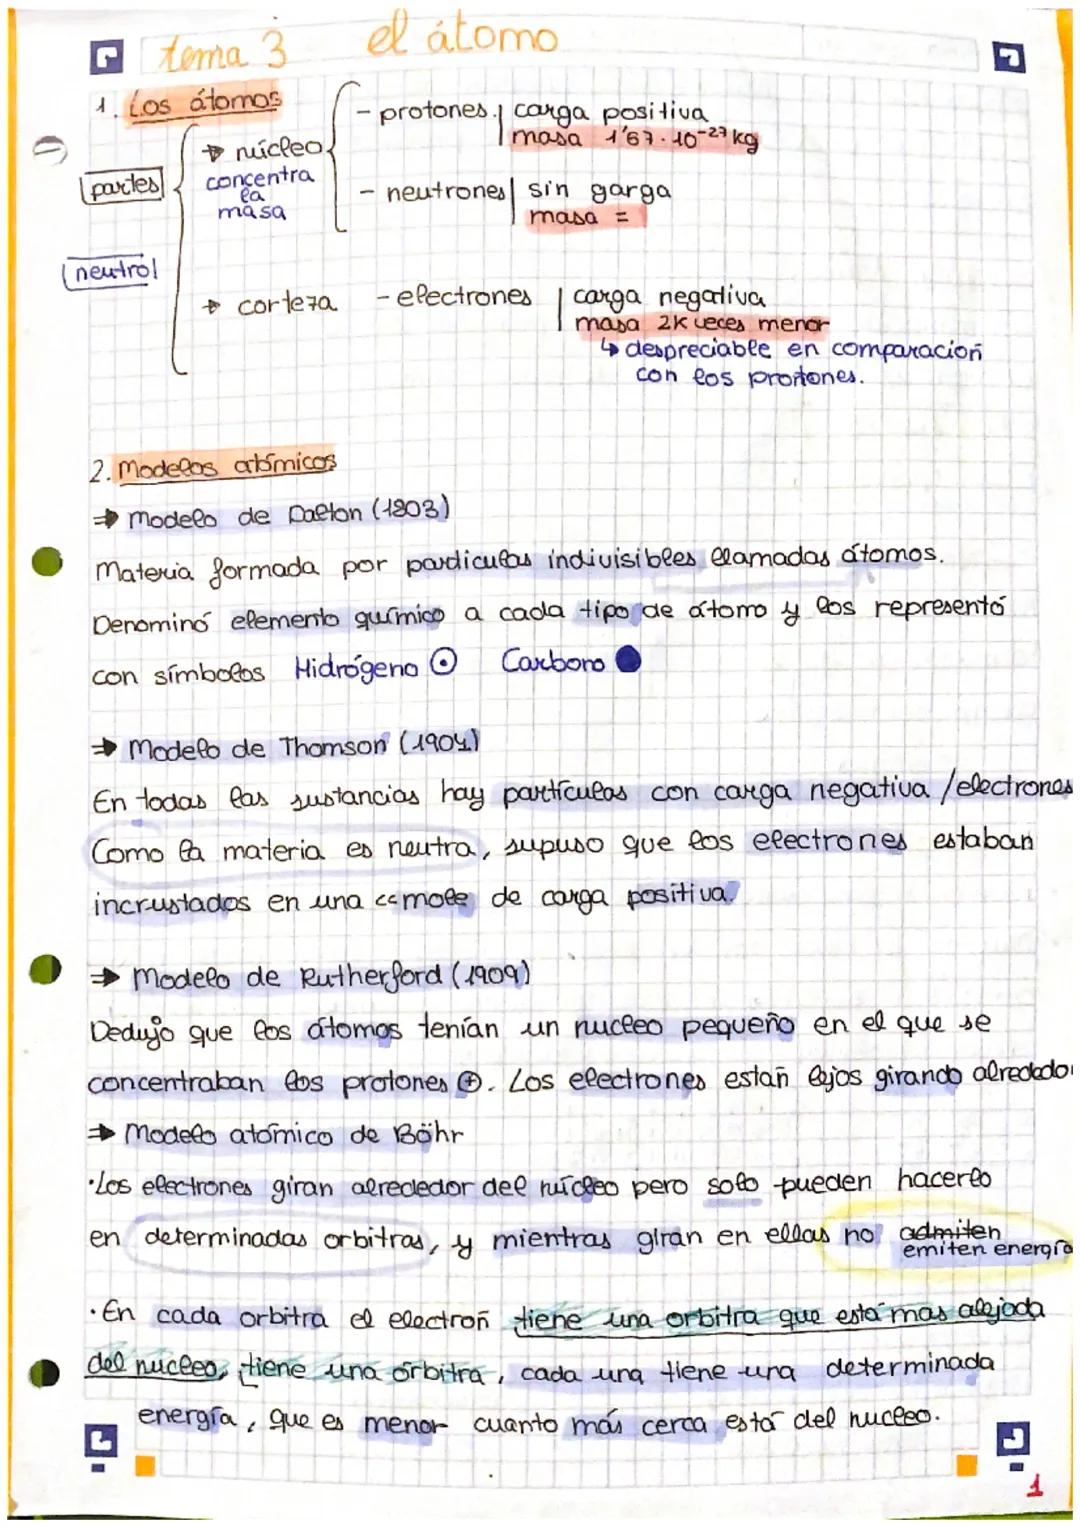 tema 3 el átomo
1. Los átomos
partes
neutro
→ núcleo
concentra
la
masa
- protones carga positiva
masa 1'67·10⁻²⁷ kg
- neutrones sin garga
masa =
→ corteza - electrones carga negativa
masa 2K veces menor
↳ despreciable en comparación
con los protones.
2. Modelos atómicos
⇒ Modelo de Dalton (1803)
Materia formada por particulas indivisibles llamadas átomos.
Denominó elemento químico a cada tipo de átomo y los representó
con símbolos Hidrógeno ⊙ Carbono ●
⇒ Modelo de Thomson (1904)
En todas las sustancias hay partículas con carga negativa /electrones
Como la materia es neutra, supuso que los electrones estaban
incrustados en una mole de carga positiva.
⇒ Modelo de Rutherford (1909)
Dedujo que los átomos tenían un nucleo pequeño en el que se
concentraban los protones ⊕. Los electrones están lejos girando alrededor
⇒ Modelo atómico de Böhr
·Los electrones giran alrededor del núcleo pero solo pueden hacerlo
en determinadas orbitras, y mientras giran en ellas no admiten
emiten energía
·En cada orbitra el electrón tiene una orbitra que está mas alejada
del nucleo, tiene una órbitra, cada una tiene una determinada
energía, que es menor cuanto más cerca está del nucleo.
1